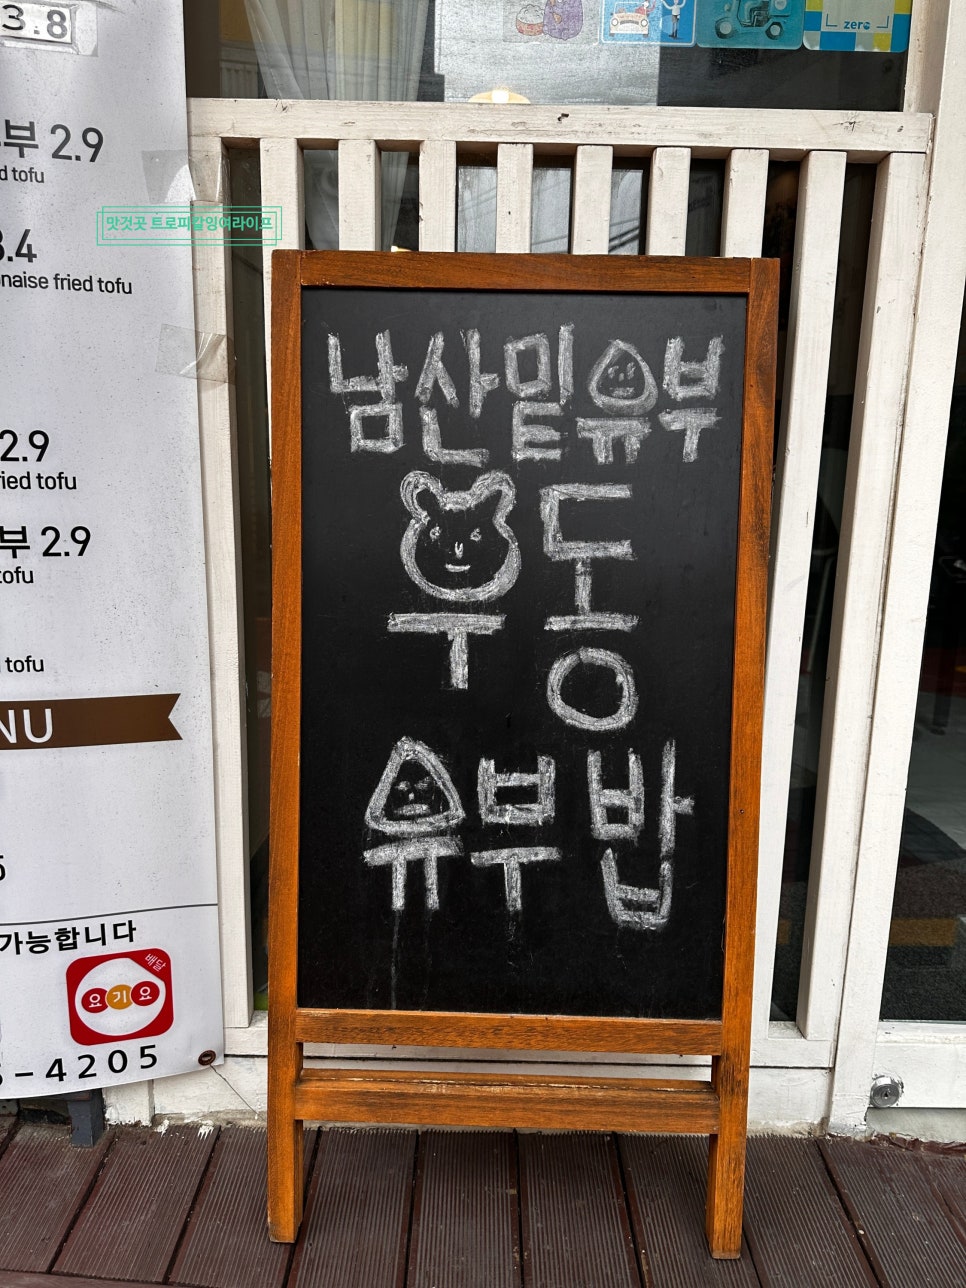 3.8
부 2.9
d tofu
맛것곳 트로피칼잉여라이프
3.4
naise fried tofu
2.9
ried tofu
부 2.9
tofu
tofu
NU
5
가능합니다
배달
요기요
-4205
zero
남산밑유부
우동
유부밥